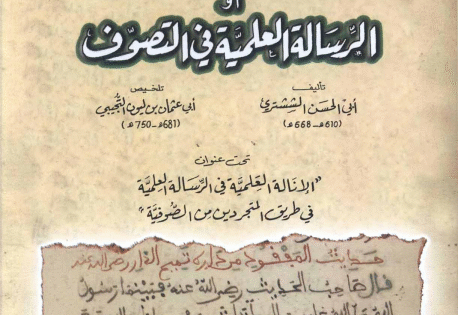 أو
الرسالة العلمية في التصوف
تأليف
أبي الحسن الششتري
(610هـ - 668هـ)
تلخيص
أبي عثمان بن ليون التجيبي
(681هـ - 750هـ)
تحت عنوان
"الإنالة العلمية في الرسالة العلمية
في طريق المتجردين من الصوفية"
حديث المفقود من داره تميم الدار رضي الله عنه
قال صاحب الحديث رضي الله عنه فبينما رسول